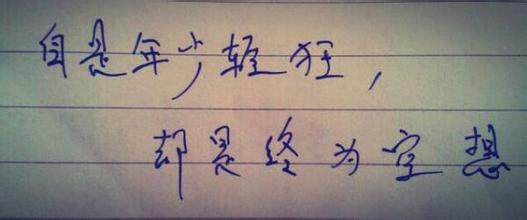 自是年少轻狂，
却是终为空想